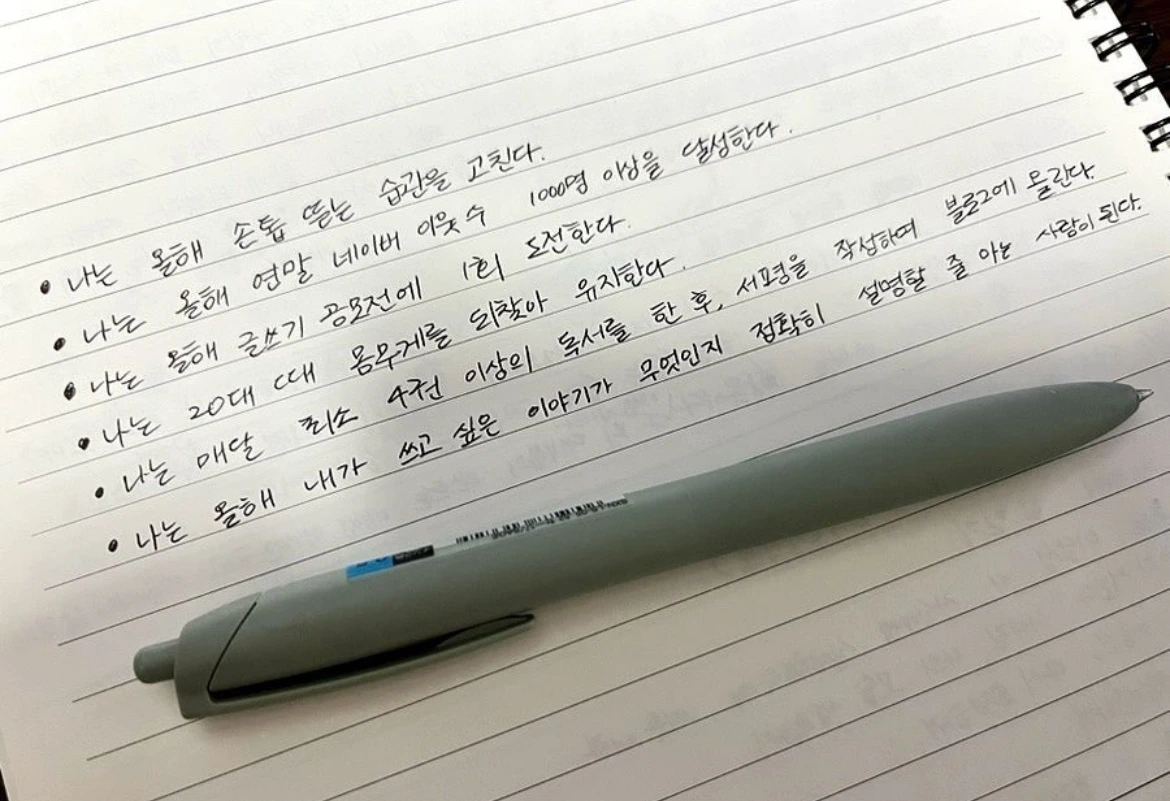 • 나는 올해 손톱 뜯는 습관을 고친다.
• 나는 올해 연말 네이버 이웃수 1000명 이상을 달성한다.
• 나는 올해 글쓰기 공모전에 1회 도전한다.
• 나는 20대 때 몸무게를 되찾아 유지한다.
• 나는 매달 최소 4권 이상의 독서를 한 후, 서평을 작성하여 블로그에 올린다.
• 나는 올해 내가 쓰고 싶은 이야기가 무엇인지 정확히 설명할 줄 아는 사람이 된다.